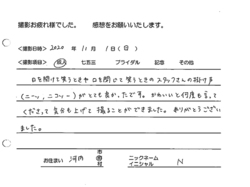 撮影お疲れ様でした。 感想をお願いいたします。
<撮影日時> 2020 年 11 月 1 日 (日)
<撮影項目> 成人 七五三 ブライダル 記念 その他
口を開けて笑うときや口を閉じて笑うときのスタッフさんの掛け声
(ニー、ニコッー)がとても良かったです。かわいいと何度も言って
くださって気分も上げて撮ることができました。ありがとうござい
ました。
お住まい 河内 市 町 村 ニックネーム イニシャル N